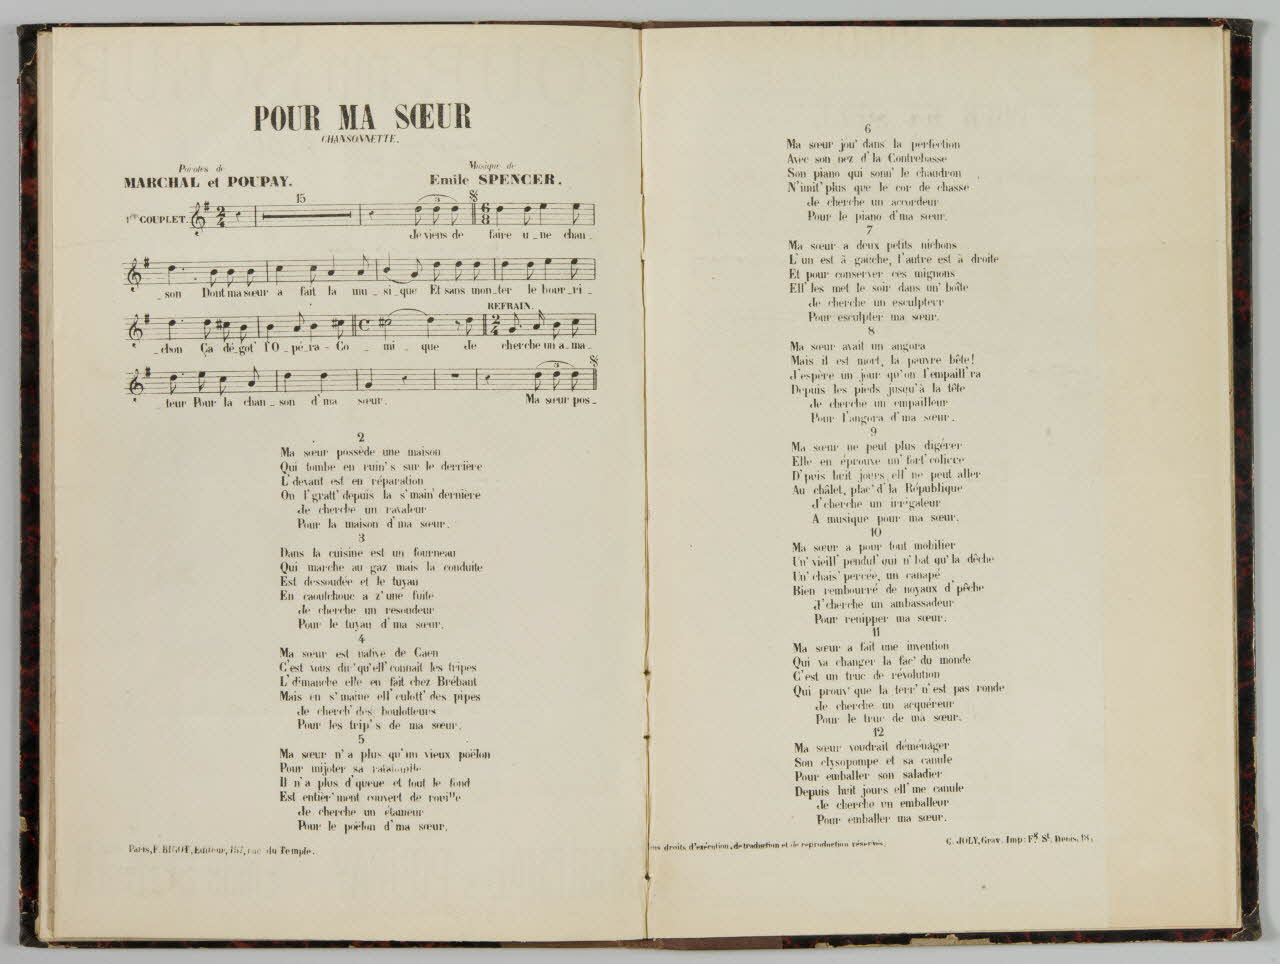 POUR MA SŒUR
CHANSONNETTE.
Paroles de
MARCHAL et POUPAY.
Musique de
Emile SPENCER.
1er COUPLET.
15
3
Je viens de faire u_ne chan_
_son Dont ma sœur a fait la mu_si_que Et sans mon_ter le bour_ri_
REFRAIN.
_chon Ça dé_got' l'O_pé_ra-Co_mi_que Je cherche un a_ma_
3
_teur Pour la chan_son d'ma sœur. Ma sœur pos_
2
Ma sœur possède une maison
Qui tombe en ruin's sur le derrière
L'devant est en réparation
On l'gratt' depuis la s'main' dernière
Je cherche un ravaleur
Pour la maison d'ma sœur.
3
Dans la cuisine est un fourneau
Qui marche au gaz mais la conduite
Est dessoudée et le tuyau
En caoutchouc a z'une fuite
Je cherche un resoudeur
Pour le tuyau d'ma sœur.
4
Ma sœur est native de Caen
C'est vous dir' qu'ell' connait les tripes
L'dimanche elle en fait chez Brébant
Mais en s'maine ell' culott' des pipes
Je cherch' des boulotteurs
Pour les trip's de ma sœur.
5
Ma sœur n'a plus qu'un vieux poëlon
Pour mijoter sa ratatouille
Il n'a plus d'queue et tout le fond
Est entièr'ment couvert de rouille
Je cherche un étameur
Pour le poëlon d'ma sœur.
Paris, F. BIGOT, Editeur, 157, rue du Temple.
6
Ma sœur jou' dans la perfection
Avec son nez d'la Contrebasse
Son piano qui sonn' le chaudron
N'imit' plus que le cor de chasse
Je cherche un accordeur
Pour le piano d'ma sœur.
7
Ma sœur a deux petits nichons
L'un est à gauche, l'autre est à droite
Et pour conserver ces mignons
Ell' les met le soir dans un' boîte
Je cherche un esculpteur
Pour esculpter ma sœur.
8
Ma sœur avait un angora
Mais il est mort, la pauvre bête!
J'espère un jour qu'on l'empaill'ra
Depuis les pieds jusqu'à la tête
Je cherche un empailleur
Pour l'angora d'ma sœur.
9
Ma sœur ne peut plus digérer
Elle en éprouve un' fort' colique
D'puis huit jours ell' ne peut aller
Au châlet, plac' d'la République
J'cherche un irrigateur
A musique pour ma sœur.
10
Ma sœur a pour tout mobilier
Un' vieill' pendul' qui n'bat qu'la dèche
Un' chais' percée, un canapé
Bien rembourré de noyaux d'pêche
J'cherche un ambassadeur
Pour renipper ma sœur.
11
Ma sœur a fait une invention
Qui va changer la fac' du monde
C'est un truc de révolution
Qui prouv' que la terr' n'est pas ronde
Je cherche un acquéreur
Pour le truc de ma sœur.
12
Ma sœur voudrait déménager
Son clysopompe et sa canule
Pour emballer son saladier
Depuis huit jours ell' me canule
Je cherche un emballeur
Pour emballer ma sœur.
droits d'exécution, de traduction et de reproduction réservés.
C. JOLY, Grav. Imp: Fg St Denis,